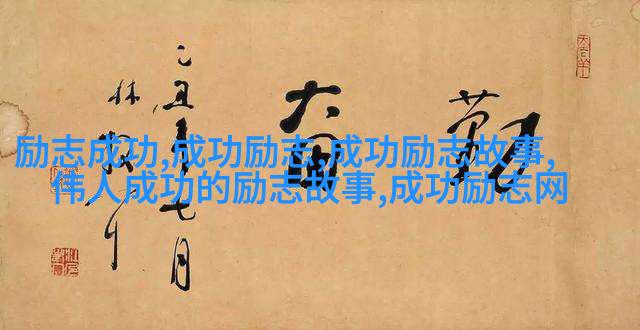 勤奋
乙丑年七月
林散之
励志成功,成功励志,成功励志故事,
伟人成功的励志故事,成功励志网